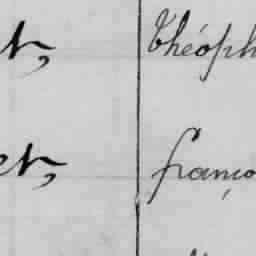 et, Théoph
et, franço